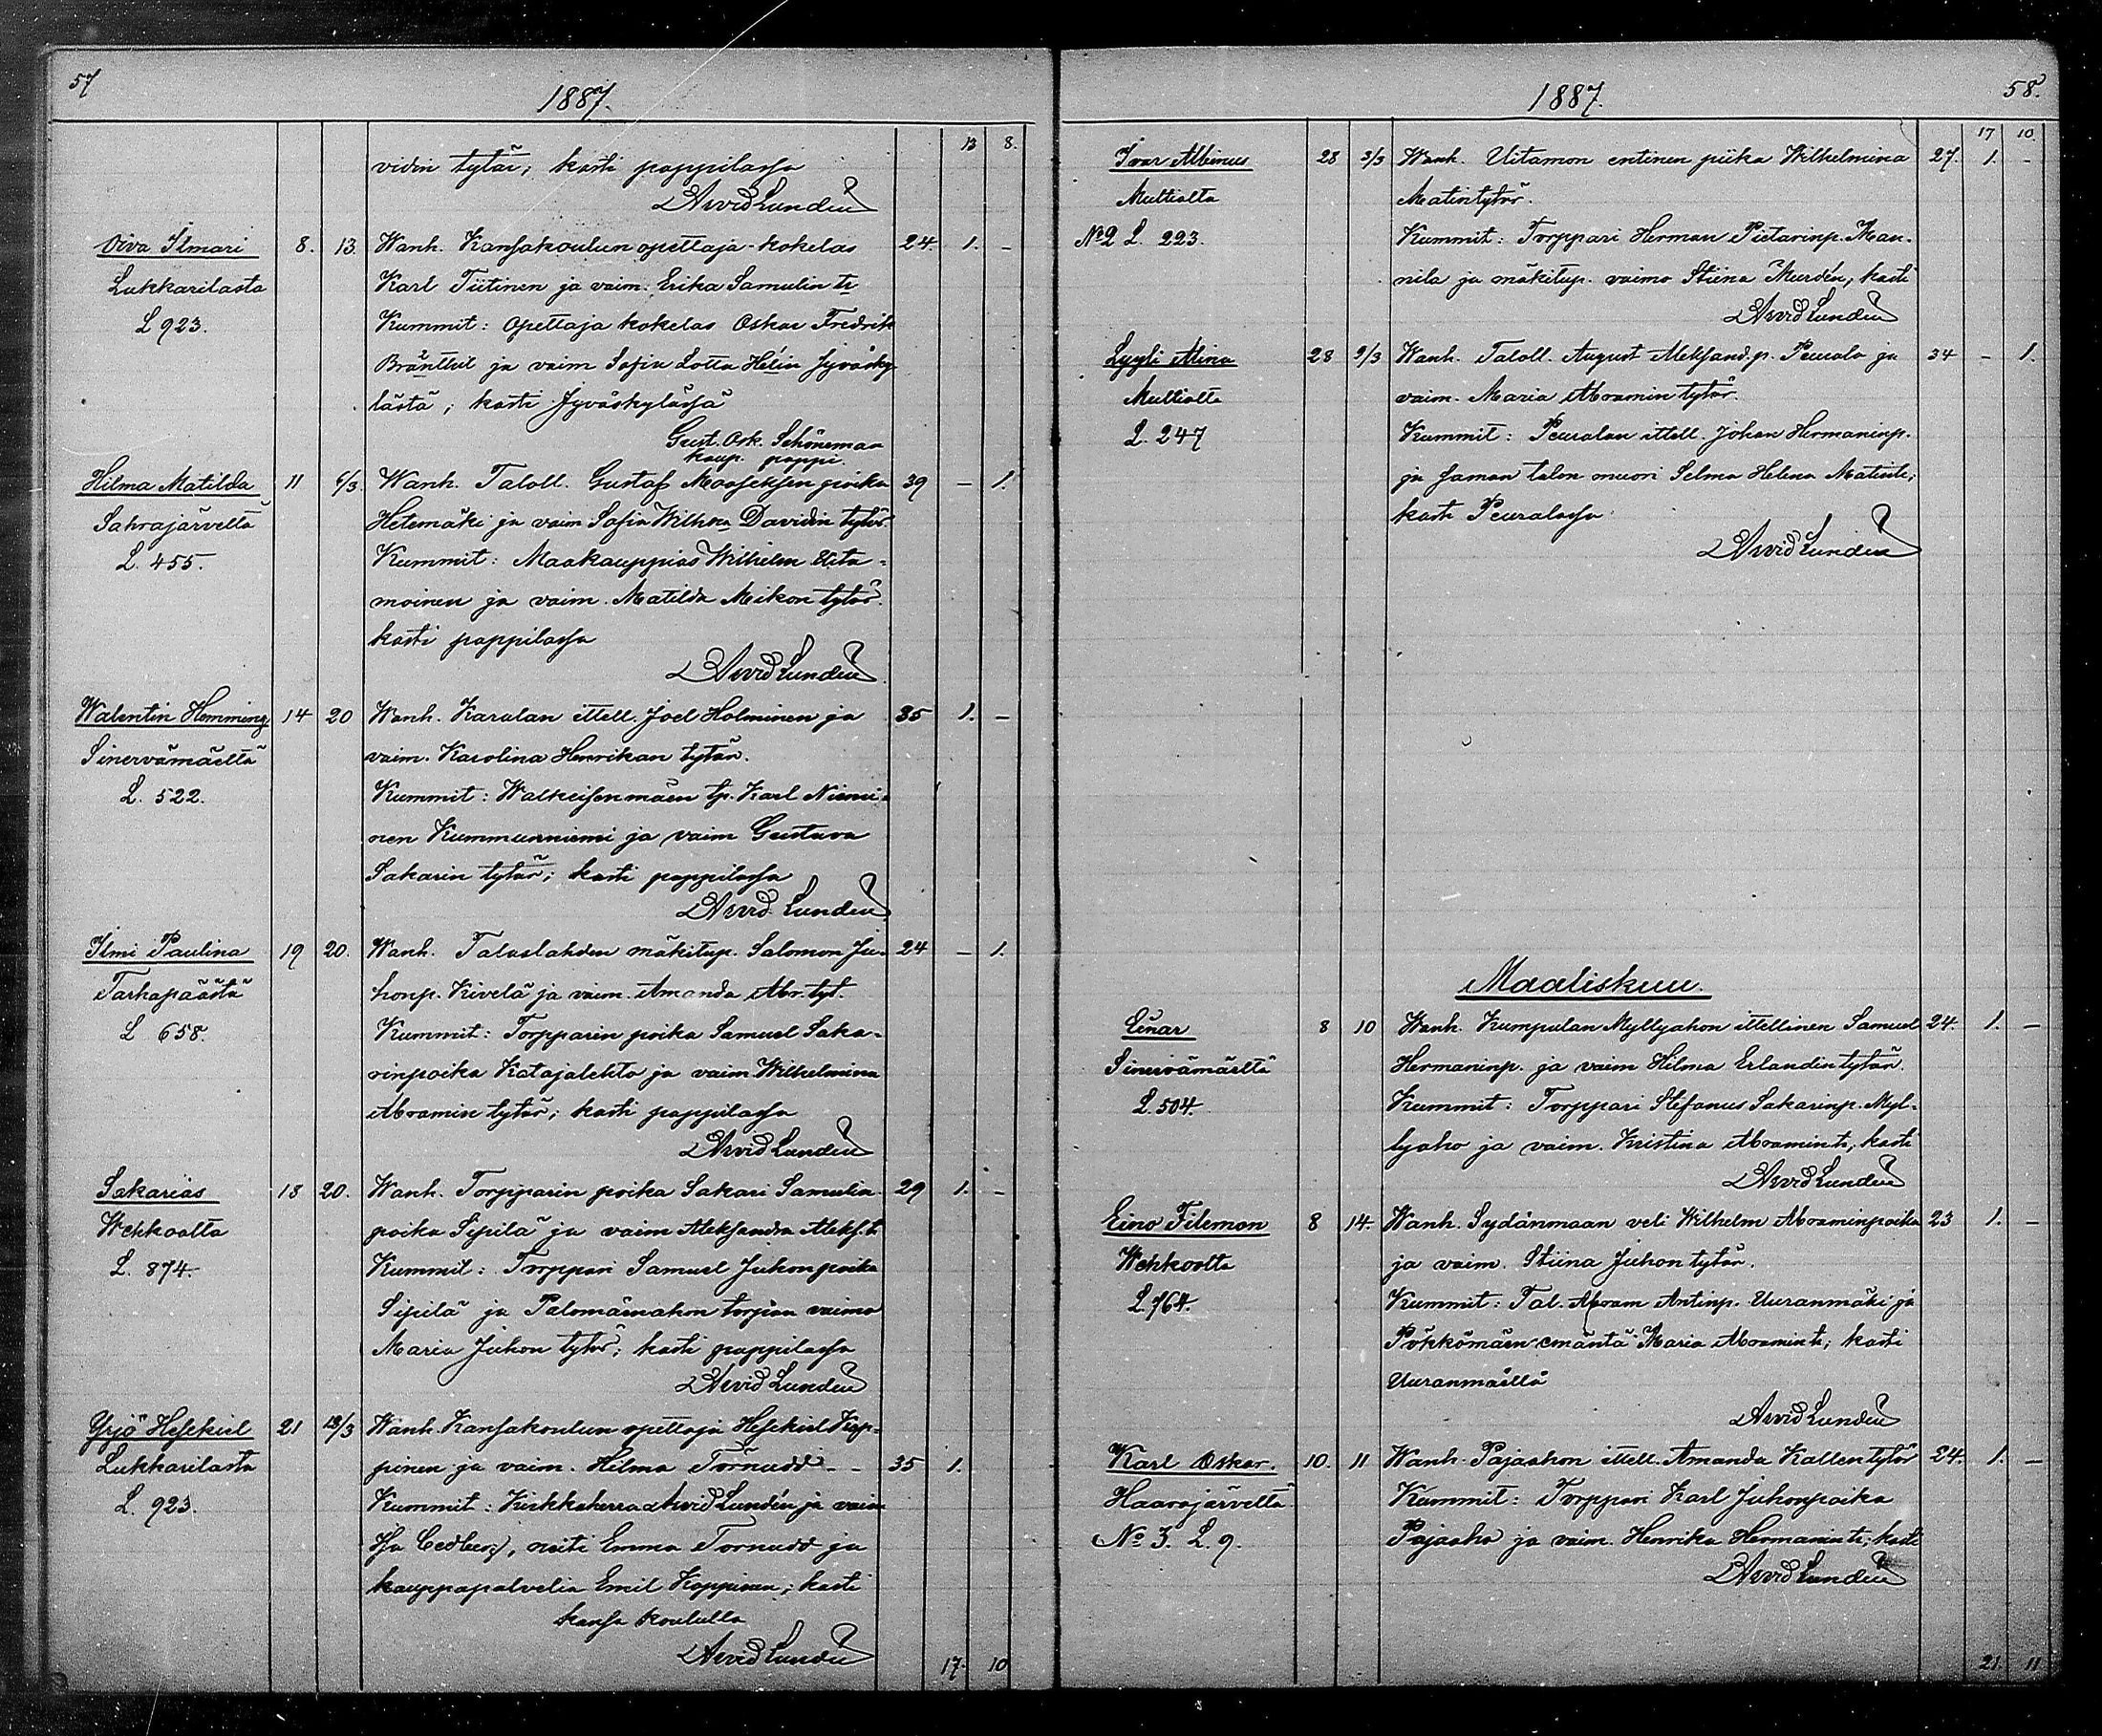 57
1887.
13 8.
vidin tytär; kasti pappilassa
Arvid Lundén
Oiva Ilmari 8. 13. Wanh. Kansakoulun opettaja-kokelas 24. 1. -
Lukkarilasta Karl Tiitinen ja vaim. Erika Samulin tr
L 923. Kummit: Opettaja kokelas Oskar Fredrik
ja vaim Sofia Lotta Helin Jyväsky-
lästä; kasti Jyväskylässä
Gust. Osk. Schöneman
kaup. pappi.
Hilma Matilda 11 6/3. Wanh. Taloll. Gustaf Mooseksen poika 39 - 1.
Sahrajärveltä Hetemäki ja vaim Sofia Wilhna Davidin tytär
L. 455. Kummit: Maakauppias Wilhelm Uita-
moinen ja vaim. Matilda Mikon tytär.
kasti pappilassa
Arvid Lundén
Walentin Hemming 14 20 Wanh. Karalan ittell. Joel Holminen ja 35 1. -
Sinervämäeltä vaim. Karolina Henrikan tytär.
L. 522. Kummit: Walkeisenmäen tp. Karl Niemi-
nen Kummunniemi ja vaim Gustava
Sakarin tytär; kasti pappilassa
Arvid Lundén
Ilmi Paulina 19 20. Wanh. Talaslahden mäkitup. Salomon Ju- 24 - 1.
Tarhapäästä honp. Kivelä ja vaim. Amanda Abr. tyt.
L 658. Kummit: Torpparin poika Samuel Saka-
rinpoika Katajalehto ja vaim Wilhelmina
Abramin tytär; kasti pappilassa
Arvid Lundén
Sakarias 18 20. Wanh. Torpparin poika Sakari Samulin 29 1. -
Wehkoolta poika Sipilä ja vaim Aleksandra Aleks. t.
L. 874. Kummit: Torppari Samuel Juhonpoika
Sipilä ja Palomäenahon torpan vaimo
Maria Juhon tytär; kasti pappilassa
Arvid Lundén
Yrjö Hesekiel 21 13/3 Wanh. Kansakoulun opettaja Hesekiel Kop-
Lukkarilasta pinen ja vaim. Hilma Törnudd - - 35 1.
L. 923. Kummit: Kirkkoherra Arvid Lundén ja vaim
Cedberg, neiti Emma Törnudd ja
kauppapalvelia Emil Koppinen; kasti
kansa koululla
Arvid Lundén
17. 10
1887. 58.
17 10.
Ivar Albinus 28 3/3 Wanh. Uitamon entinen piika Wilhelmina 27. 1. -
Multialta Matintytär.
No 2 L. 223. Kummit: Torppari Herman Pietarinp. Man-
nila ja mäkitup. vaimo Stiina Murdén; kasti
Arvid Lundén
Lyyli Miina 28 9/3 Wanh. Taloll. August Aleksand. p. Peurala ja 34 - 1.
Multialta vaim. Maria Abramin tytär.
L. 247 Kummit: Peuralan ittell. Johan Hermaninp.
ja saman talon muori Selma Helena Matint.;
kasti Peuralassa
Arvid Lundén
Maaliskuu.
Einar 8 10 Wanh. Kumpulan Myllyahon ittellinen Samuel 24. 1. -
Sinervämäeltä Hermaninp. ja vaim Hilma Erlandin tytär.
L. 504. Kummit: Torppari Stefanus Sakarinp. Myl-
lyaho ja vaim. Kristina Abramin t.; kasti
Arvid Lundén
Eino Filemon 8 14. Wanh. Sydänmaan veli Wilhelm Abraminpoika 23 1. -
Wehkoolta ja vaim. Stiina Juhon tytär.
L. 764. Kummit: Tal. Abram Antinp. Uuranmäki ja
Pökkömäen emäntä Maria Abramin t.; kasti
Uuranmäellä
Arvid Lundén
Karl Oskar. 10. 11 Wanh. Pajaahon ittell. Amanda Kallen tytär 24. 1. -
Haarajärveltä Kummit: Torppari Karl Juhonpoika
No 3. L. 9. Pajaaho ja vaim. Henrika Hermanin t.; kasti
Arvid Lundén
21. 11